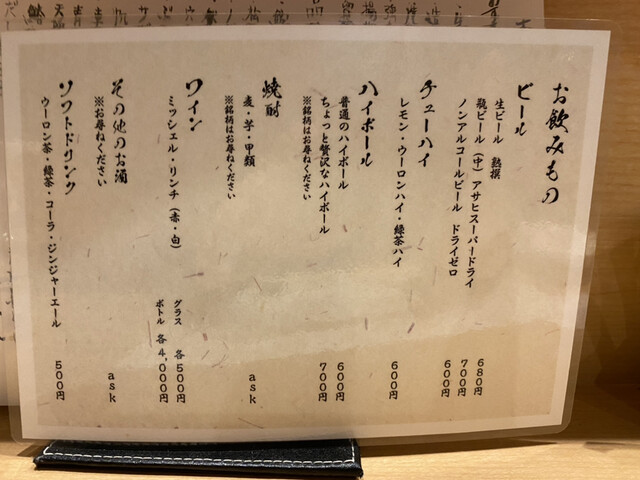 お飲みもの
ビール
生ビール 熟撰 680円
瓶ビール（中）アサヒスーパードライ 700円
ノンアルコールビール ドライゼロ 600円
チューハイ
レモン・ウーロンハイ・緑茶ハイ 600円
ハイボール
普通のハイボール 600円
ちょっと贅沢なハイボール 700円
※銘柄はお尋ねください
焼酎
麦・芋・甲類 ask
※銘柄はお尋ねください
ワイン
ミッシェル・リンチ（赤・白） グラス 各500円
ボトル 各4,000円
その他のお酒
※お尋ねください ask
ソフトドリンク
ウーロン茶・緑茶・コーラ・ジンジャーエール 500円